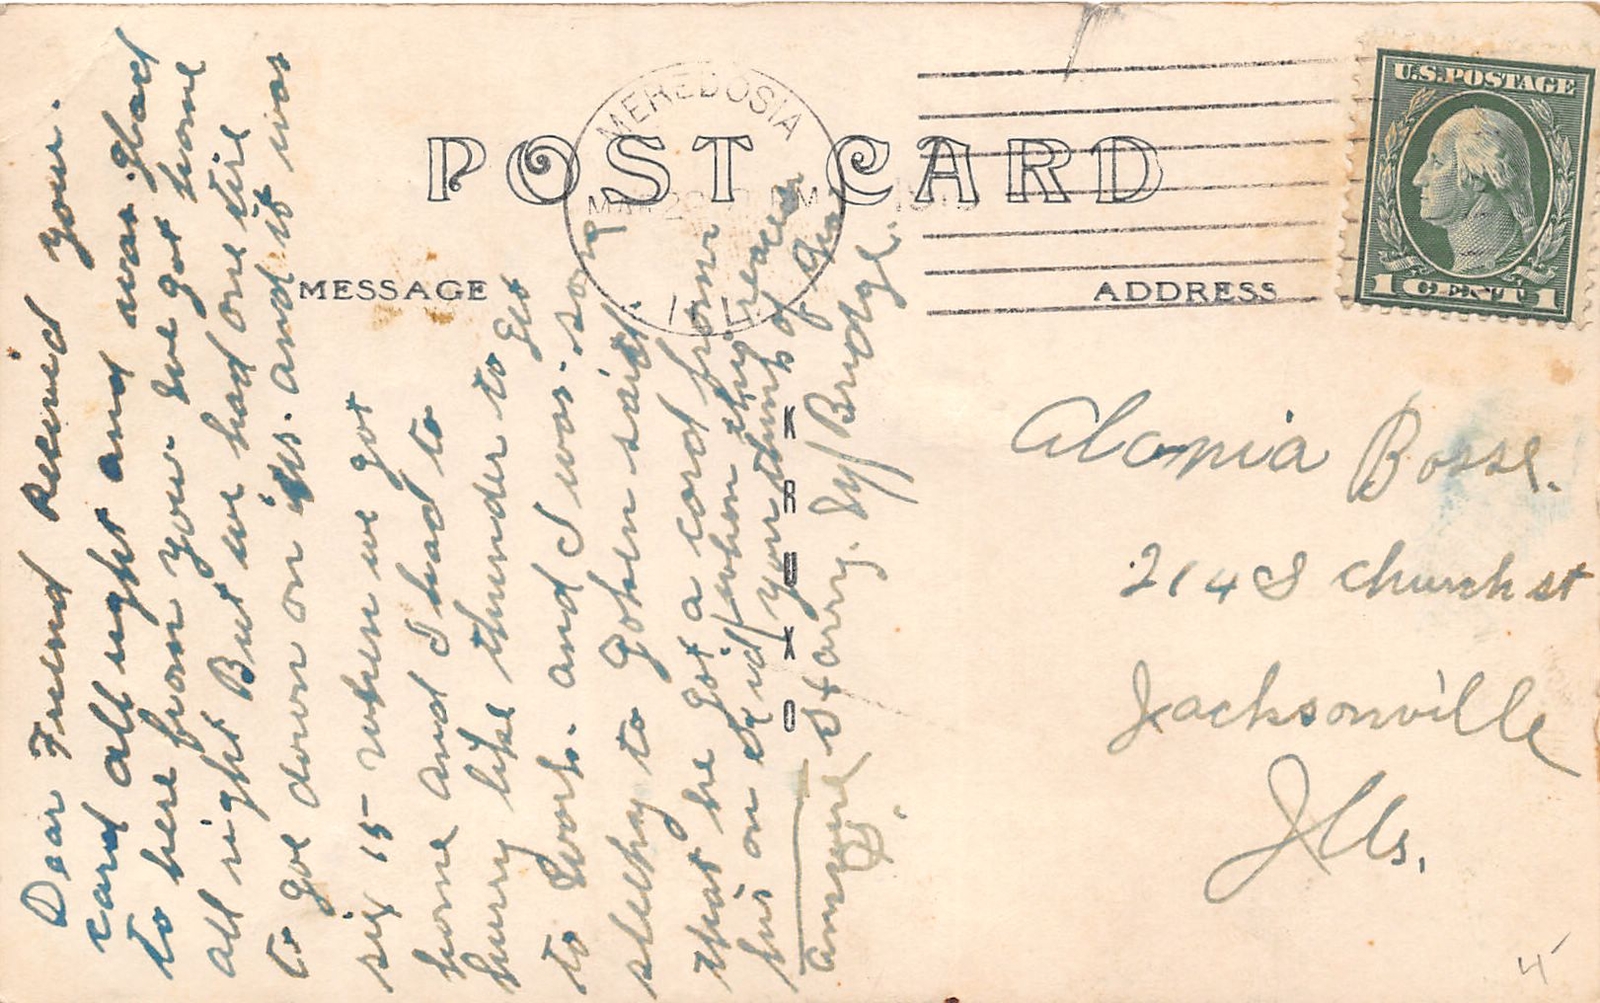 POST CARD
MESSAGE
ADDRESS
MEREDOSIA
ILL.
MAR
U.S. POSTAGE
1 CENT 1
Dear Friend Received your.
card all right and was glad
to here from you. we got home
all right But we had one tire
to goe down on us. and it was
six 15 when we got
home and I had to
hurry like thunder to get
to work. and I was. so
to John said
that he got a card from
his on when they
you think of
Harry. Bridge.
Bosse.
214 S church st
Jacksonville
Ills.
4